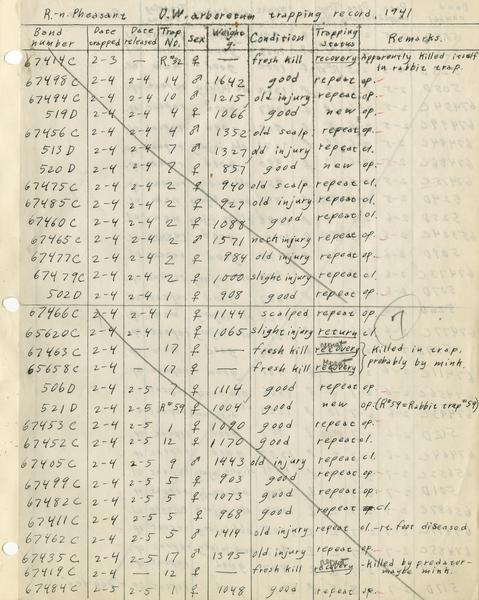 R.-n. Pheasant U.W. arboretum trapping record, 1941
Band number Date trapped Date released Trap No. Sex Weight g. Condition Trapping status Remarks.
67414C 2-3 — R#32 ♀ — fresh kill recovery Apparently killed itself in rabbit trap.
67498C 2-4 2-4 14 ♂ 1642 good repeat op.
67494C 2-4 2-4 10 ♂ 1215 old injury repeat op.
519D 2-4 2-4 4 ♀ 1066 good new op.
67456C 2-4 2-4 4 ♂ 1352 old scalp repeat op.
513D 2-4 2-4 7 ♂ 1327 old injury repeat cl.
520D 2-4 2-4 7 ♀ 857 good new op.
67475C 2-4 2-4 2 ♀ 940 old scalp repeat cl.
67485C 2-4 2-4 2 ♀ 927 old injury repeat cl.
67460C 2-4 2-4 2 ♀ 1088 good repeat cl.
67465C 2-4 2-4 2 ♂ 1571 neck injury repeat op.
67477C 2-4 2-4 2 ♀ 984 old injury repeat op.
67479C 2-4 2-4 2 ♀ 1000 slight injury repeat cl.
502D 2-4 2-4 1 ♀ 908 good repeat op.
67466C 2-4 2-4 1 ♀ 1144 scalped repeat op.
65620C 2-4 2-4 1 ♀ 1065 slight injury return cl.
67463C 2-4 — 17 ♀ — fresh kill repeat recovery Killed in trap,
65658C 2-4 — 17 ♀ — fresh kill repeat recovery probably by mink.
506D 2-4 2-5 7 ♀ 1114 good repeat op.
521D 2-4 2-5 R#59 ♀ 1004 good new op. (R#59=Rabbit trap #59)
67453C 2-4 2-5 1 ♀ 1090 good repeat op.
67452C 2-4 2-5 12 ♀ 1170 good repeat cl.
67405C 2-4 2-5 9 ♂ 1443 old injury repeat cl.
67499C 2-4 2-5 5 ♀ 903 good repeat op.
67482C 2-4 2-5 5 ♀ 1073 good repeat op.
67411C 2-4 2-5 5 ♀ 968 good repeat cl.
67462C 2-4 2-5 5 ♂ 1414 old injury repeat cl.-rt. foot diseased.
67435C 2-4 2-5 17 ♂ 1395 old injury repeat op.
67419C 2-4 12 ♀ — fresh kill repeat recovery -Killed by predator- maybe mink.
67484C 2-5 2-5 1 ♀ 1048 good repeat op.